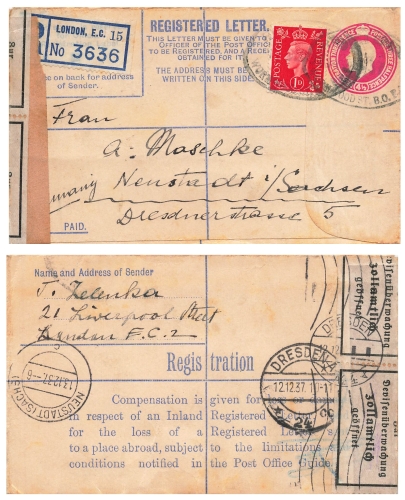 LONDON, E.C. 15
R No 3636
REGISTERED LETTER.
THIS LETTER MUST BE GIVEN TO AN
OFFICER OF THE POST OFFICE
TO BE REGISTERED, AND A RECEIPT
OBTAINED FOR IT.
THE ADDRESS MUST BE
WRITTEN ON THIS SIDE.
POSTAGE REVENUE
1D
me on back for address
of Sender.
Frau
A. Maschke
many Neustadt i/Sachsen
Dresdnerstrasse 5
PAID.
Name and Address of Sender
J. Zelenka
21 Liverpool Street
London E.C.2
Registration
NEUSTADT (SACHS)
13.12.37.
DRESDEN
12.12.37.
24
DRESDEN
Compensation is given for
in respect of an Inland Registered
for the loss of a Registered Letter
to a place abroad, subject to the limitations
conditions notified in the Post Office Guide.
Devisenüberwachung
zollamtlich
geöffnet
Devisenüberwachung
zollamtlich
geöffnet